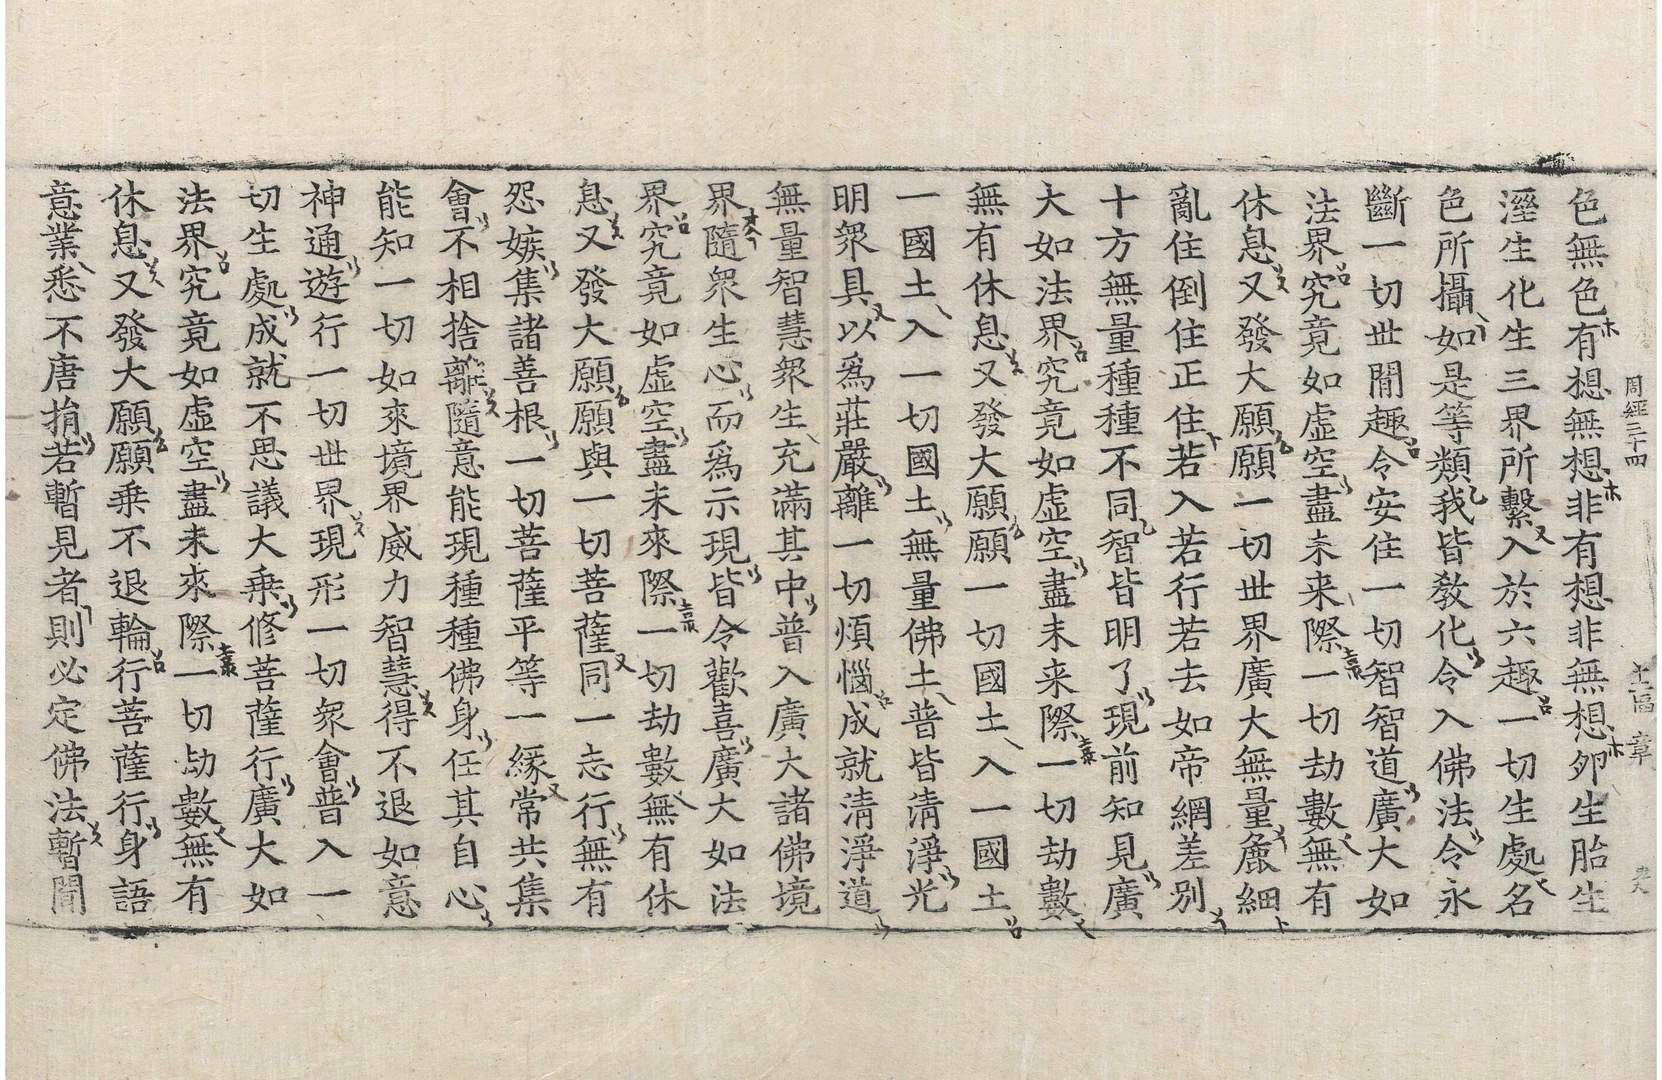 周經三十四
色無色有想無想非有想非無想卵生胎生
溼生化生三界所繫入於六趣一切生處名
色所攝如是等類我皆敎化令入佛法令永
斷一切世間趣令安住一切智智道廣大如
法界究竟如虛空盡未來際一切劫數無有
休息又發大願願一切世界廣大無量麁細
亂住倒住正住若入若行若去如帝網差別
十方無量種種不同智皆明了現前知見廣
大如法界究竟如虛空盡未來際一切劫數
無有休息又發大願願一切國土入一國土
一國土入一切國土無量佛土普皆清淨光
明衆具以爲莊嚴離一切煩惱成就清淨道
無量智慧衆生充滿其中普入廣大諸佛境
界隨衆生心而爲示現皆令歡喜廣大如法
界究竟如虛空盡未來際一切劫數無有休
息又發大願願與一切菩薩同一志行無有
怨嫉集諸善根一切菩薩平等一緣常共集
會不相捨離隨意能現種種佛身任其自心
能知一切如來境界威力智慧得不退如意
神通遊行一切世界現形一切衆會普入一
切生處成就不思議大乘修菩薩行廣大如
法界究竟如虛空盡未來際一切劫數無有
休息又發大願願乘不退輪行菩薩行身語
意業悉不唐捐若暫見者則必定佛法暫聞